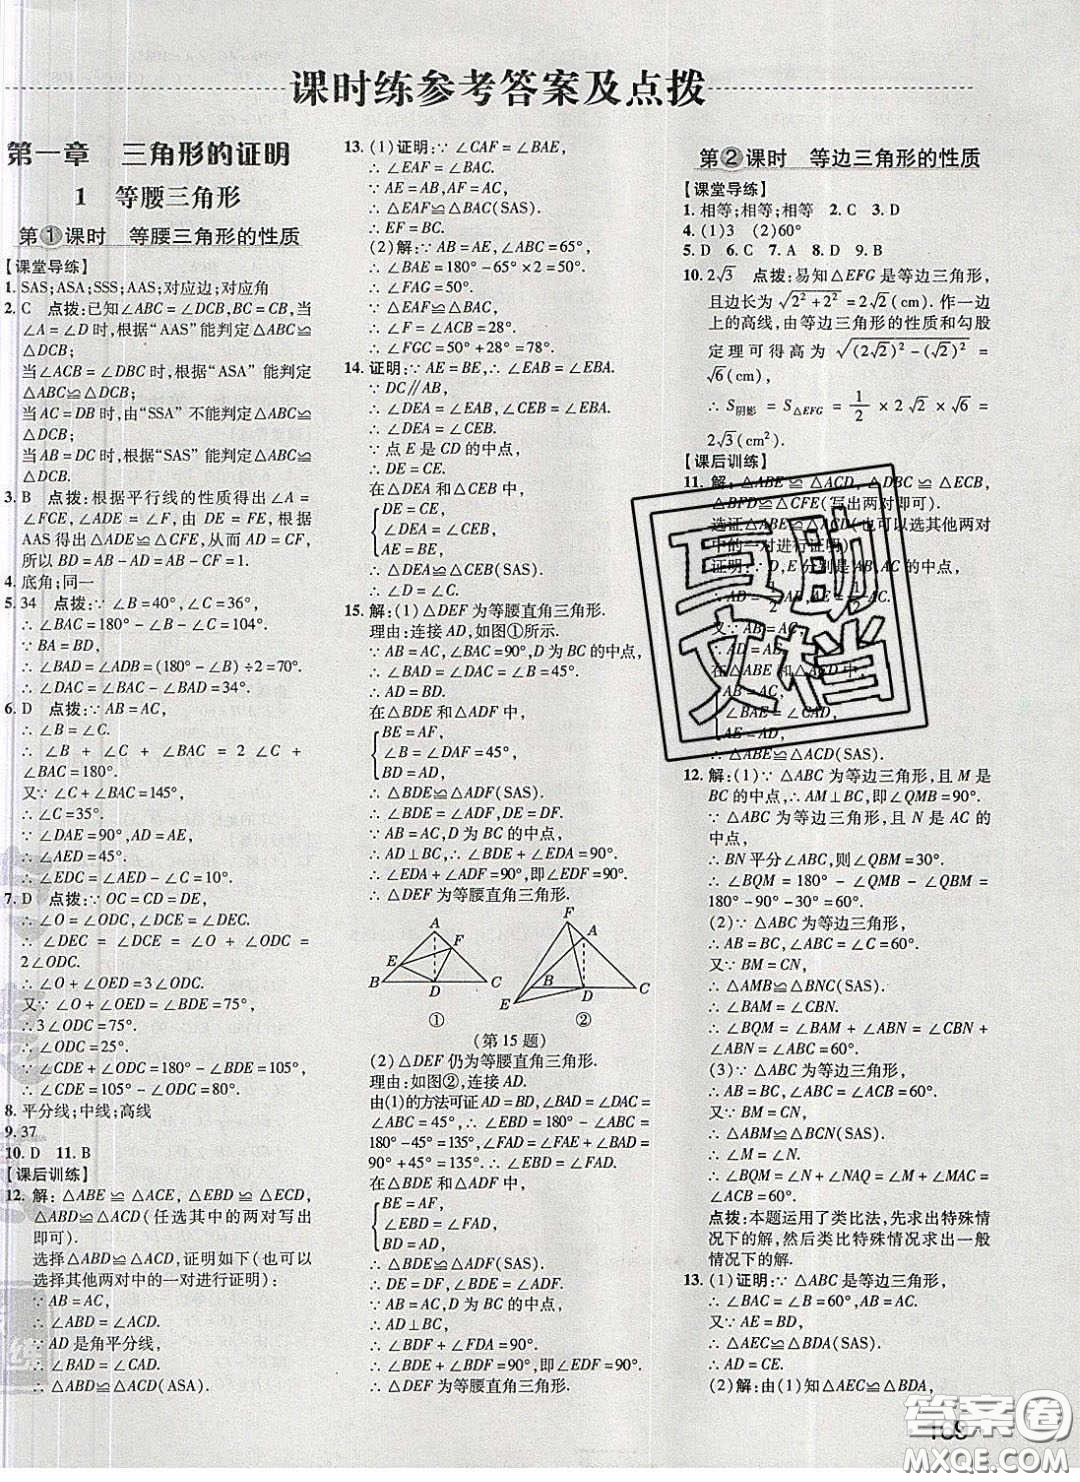 课时练参考答案及点拨
第一章 三角形的证明
1 等腰三角形
第①课时 等腰三角形的性质
【课堂导练】
1. SAS;ASA;SSS;AAS;对应边;对应角
2. C 点拨:已知∠ABC=∠DCB,BC=CB,当
∠A=∠D时,根据“AAS”能判定△ABC≌
△DCB;
当∠ACB=∠DBC时,根据“ASA”能判定
△ABC≌△DCB;
当AC=DB时,由“SSA”不能判定△ABC≌
△DCB;
当AB=DC时,根据“SAS”能判定△ABC≌
△DCB.
3. B 点拨:根据平行线的性质得出∠A=
∠FCE,∠ADE=∠F,由DE=FE,根据
AAS得出△ADE≌△CFE,从而AD=CF,
所以BD=AB-AD=AB-CF=1.
4. 底角;同一
5. 34 点拨:∵∠B=40°,∠C=36°,
∴∠BAC=180°-∠B-∠C=104°.
∵BA=BD,
∴∠BAD=∠ADB=(180°-∠B)÷2=70°.
∴∠DAC=∠BAC-∠BAD=34°.
6. D 点拨:∵AB=AC,
∴∠B=∠C.
∴∠B+∠C+∠BAC=2∠C+
∠BAC=180°.
又∵∠C+∠BAC=145°,
∴∠C=35°.
∵∠DAE=90°,AD=AE,
∴∠AED=45°.
∴∠EDC=∠AED-∠C=10°.
7. D 点拨:∵OC=CD=DE,
∴∠O=∠ODC,∠DCE=∠DEC.
∴∠DEC=∠DCE=∠O+∠ODC=
2∠ODC.
∴∠O+∠OED=3∠ODC.
又∵∠O+∠OED=∠BDE=75°,
∴3∠ODC=75°.
∴∠ODC=25°.
∵∠CDE+∠ODC=180°-∠BDE=105°,
∴∠CDE=105°-∠ODC=80°.
8. 平分线;中线;高线
9. 37
10. D 11. B
【课后训练】
12. 解:△ABE≌△ACE,△EBD≌△ECD,
△ABD≌△ACD(任选其中的两对写出
即可).
选择△ABD≌△ACD,证明如下(也可以
选择其他两对中的一对进行证明):
∵AB=AC,
∴∠ABD=∠ACD.
∵AD是角平分线,
∴∠BAD=∠CAD.
∴△ABD≌△ACD(ASA).
13. (1)证明:∵∠CAF=∠BAE,
∴∠EAF=∠BAC.
∵AE=AB,AF=AC,
∴△EAF≌△BAC(SAS).
∴EF=BC.
(2)解:∵AB=AE,∠ABC=65°,
∴∠BAE=180°-65°×2=50°.
∴∠FAG=50°.
∵△EAF≌△BAC,
∴∠F=∠ACB=28°.
∴∠FGC=50°+28°=78°.
14. 证明:∵AE=BE,∴∠EAB=∠EBA.
∵DC∥AB,
∴∠DEA=∠EAB,∠CEB=∠EBA.
∴∠DEA=∠CEB.
∵点E是CD的中点,
∴DE=CE.
在△DEA和△CEB中,
DE=CE,
∠DEA=∠CEB,
AE=BE,
∴△DEA≌△CEB(SAS).
15. 解:(1)△DEF为等腰直角三角形.
理由:连接AD,如图①所示.
∵AB=AC,∠BAC=90°,D为BC的中点,
∴∠BAD=∠DAC=∠B=∠C=45°.
∴AD=BD.
在△BDE和△ADF中,
BE=AF,
∠B=∠DAF=45°,
BD=AD,
∴△BDE≌△ADF(SAS).
∴∠BDE=∠ADF,DE=DF.
∵AB=AC,D为BC的中点,
∴AD⊥BC,∴∠BDE+∠EDA=90°.
∴∠EDA+∠ADF=90°,即∠EDF=90°.
∴△DEF为等腰直角三角形.
A
F
E
B D C
①
F
A
B
E D C
②
(第15题)
(2)△DEF仍为等腰直角三角形.
理由:如图②,连接AD.
由(1)的方法可证AD=BD,∠BAD=∠DAC=
∠ABC=45°,∴∠EBD=180°-∠ABC=
180°-45°=135°,∠FAD=∠FAE+∠BAD=
90°+45°=135°.∴∠EBD=∠FAD.
在△BDE和△ADF中,
BE=AF,
∠EBD=∠FAD,
BD=AD,
∴△BDE≌△ADF(SAS).
∴DE=DF,∠BDE=∠ADF.
∵AB=AC,D为BC的中点,
∴AD⊥BC.
∴∠BDF+∠FDA=90°.
∴∠BDE+∠BDF=90°,即∠EDF=90°.
∴△DEF为等腰直角三角形.
第②课时 等边三角形的性质
【课堂导练】
1. 相等;相等;相等 2. C 3. D
4. (1)3 (2)60°
5. D 6. C 7. A 8. D 9. B
10. 2√3 点拨:易知△EFG是等边三角形,
且边长为√(2²+2²)=2√2(cm).作一边
上的高线,由等边三角形的性质和勾股
定理可得高为√((2√2)²-(√2)²)=
√6(cm).
∴S阴影=S△EFG=1/2×2√2×√6=
2√3(cm²).
【课后训练】
11. 解:△ABE≌△ACD,△DBC≌△ECB,
△BFD≌△CFE(写出两对即可).
选证△ABE≌△ACD(也可以选其他两对
中的一对进行证明)
证明:∵D,E分别是AB,AC的中点,
∴AD=1/2AB,AE=1/2AC.
又∵AB=AC,
∴AD=AE.
在△ABE和△ACD中,
AB=AC,
∠BAE=∠CAD,
AE=AD,
∴△ABE≌△ACD(SAS).
12. 解:(1)∵△ABC为等边三角形,且M是
BC的中点,∴AM⊥BC,即∠AMB=90°.
∵△ABC为等边三角形,且N是AC的
中点,
∴BN平分∠ABC,则∠QBM=30°.
∴∠BQM=180°-∠AMB-∠QBM=
180°-90°-30°=60°.
(2)∵△ABC为等边三角形,
∴AB=BC,∠ABC=∠C=60°.
又∵BM=CN,
∴△AMB≌△BNC(SAS).
∴∠BAM=∠CBN.
∴∠BQM=∠BAM+∠ABN=∠CBN+
∠ABN=∠ABC=60°.
(3)∵△ABC为等边三角形,
∴AB=BC,∠ABC=∠ACB=60°.
又∵BM=CN,
∴△AMB≌△BCN(SAS).
∴∠M=∠N.
∴∠BQM=∠N+∠NAQ=∠M+∠MAC=
∠ACB=60°.
点拨:本题运用了类比法,先求出特殊情
况下的解,然后类比特殊情况求出一般
情况下的解.
13. (1)证明:∵△ABC是等边三角形,
∴∠BAC=∠B=60°,AB=AC.
又∵AE=BD,
∴△AEC≌△BDA(SAS).
∴AD=CE.
(2)解:由(1)知△AEC≌△BDA,
互助
文档
答案圈
MXQE.COM